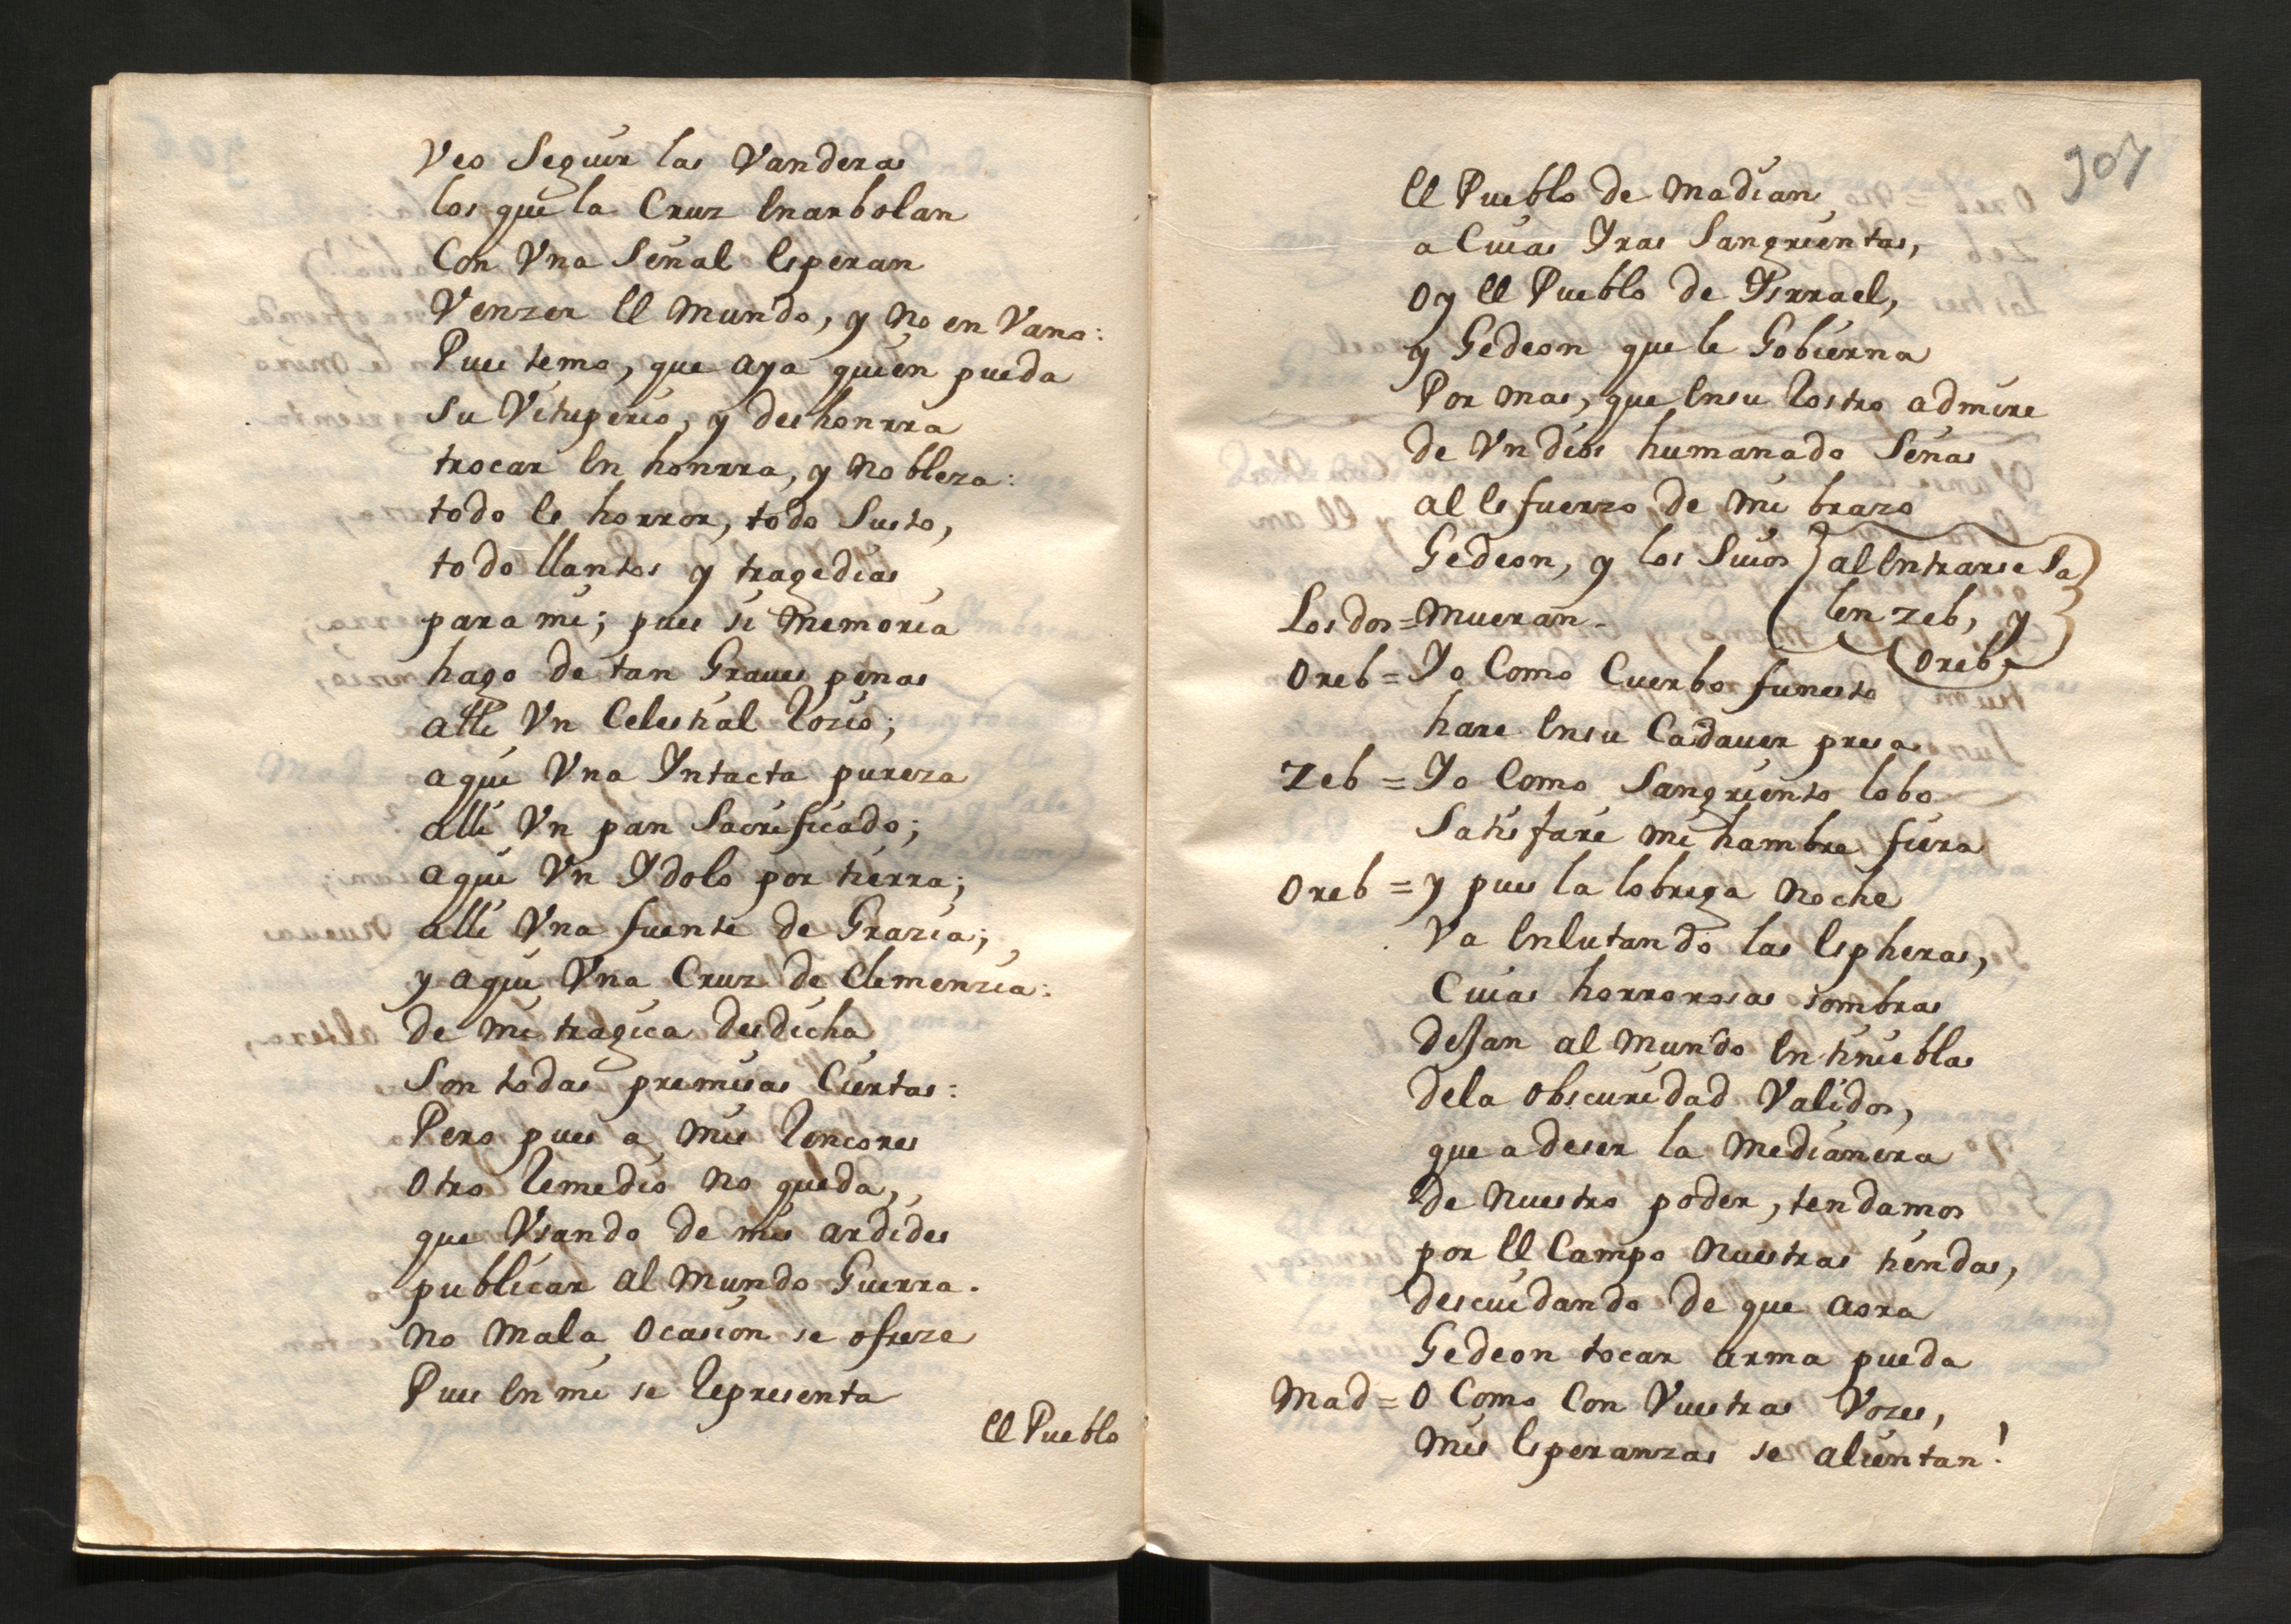 Veo Seguir las Vanderas
los que la Cruz enarbolan
Con Vna Señal esperan
Venzer el Mundo, y no en Vano:
Pues temo, que aya quien pueda
su Vituperio, y deshonrra
trocar en honrra, y nobleza:
todo es horror, todo Susto,
todo llantos y tragedias
para mi; pues si memoria
hago de tan Graues penas
alli Vn Celestial Rozio;
aqui Vna Yntacta pureza
alli Vn pan Sacrificado;
aqui Vn Ydolo por tierra;
alli Vna fuente de Grazia;
y aqui Vna Cruz de Clemenzia:
de mi tragica desdicha
Son todas premisas Ciertas:
Pero pues a mis Rencores
otro Remedio no queda,
que Vsando de mis ardides
publicar al Mundo Guerra.
no mala ocasion se ofreze
Pues en mi se Representa
el Pueblo
307
el Pueblo de Madian
a Cuias Yras Sangrientas,
oy el Pueblo de Ysrrael,
y Gedeon que le Gobierna
Por mas, que ensu Rostro admire
de Vn dios humanado Señas
al esfuerzo de mi brazo
Gedeon, y los Suios } al entrarse Sa
Los dos = Mueran. len Zeb, y
Oreb,
Oreb = Yo Como Cuerbo funesto
hare ensu Cadauer presa
Zeb = Yo Como Sangriento lobo
Satisfaré mi hambre fiera
Oreb = y pues la lobriga noche
Va enlutando las espheras,
Cuias horrorosas sombras
dejan al Mundo en tinieblas
dela obscuridad Validos,
que a deser la medianera
de nuestro poder, tendamos
por el Campo nuestras tiendas,
descuidando de que aora
Gedeon tocar arma pueda
Mad = O Como Con Vuestras Vozes,
mis esperanzas se alientan!